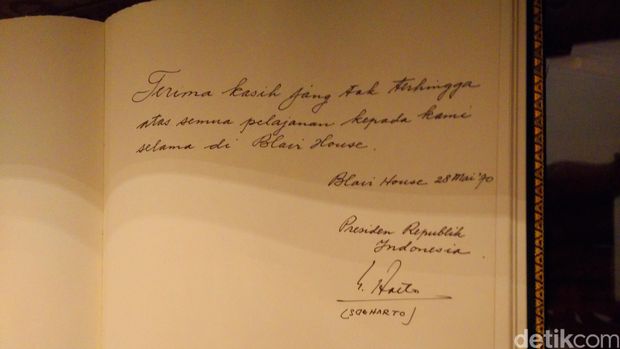 Terima kasih jang tak terhingga
atas semua pelajanan kepada kami
selama di Blair House.
Blair House 28 Mai '70
Presiden Republik
Indonesia.
(SOEHARTO)
detikcom